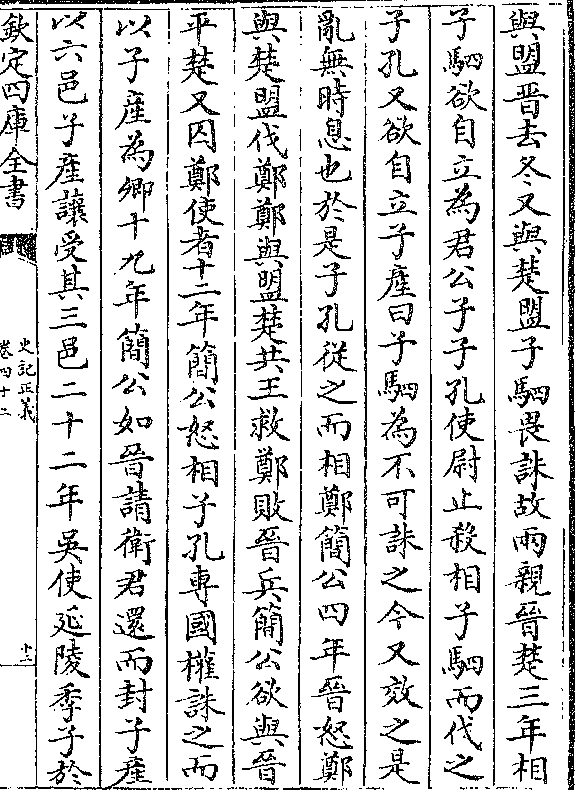 與盟晋去冬又與楚盟子駟畏誅故兩親晉楚三年相
子駟欲自立為君公子子孔使尉止殺相子駟而代之
子孔又欲自立子產曰子駟為不可誅之今又效之是
亂無時息也於是子孔從之而相鄭簡公四年晉怒鄭
與楚盟伐鄭鄭與盟楚共王救鄭敗晉兵簡公欲與晉
平楚又囚鄭使者十二年簡公怒相子孔專國權誅之而
以子產為卿十九年簡公如晉請衛君還而封子產
以六邑子產讓受其三邑二十二年吳使延陵季子於
欽定四庫全書
史記正義
卷四十二
十二